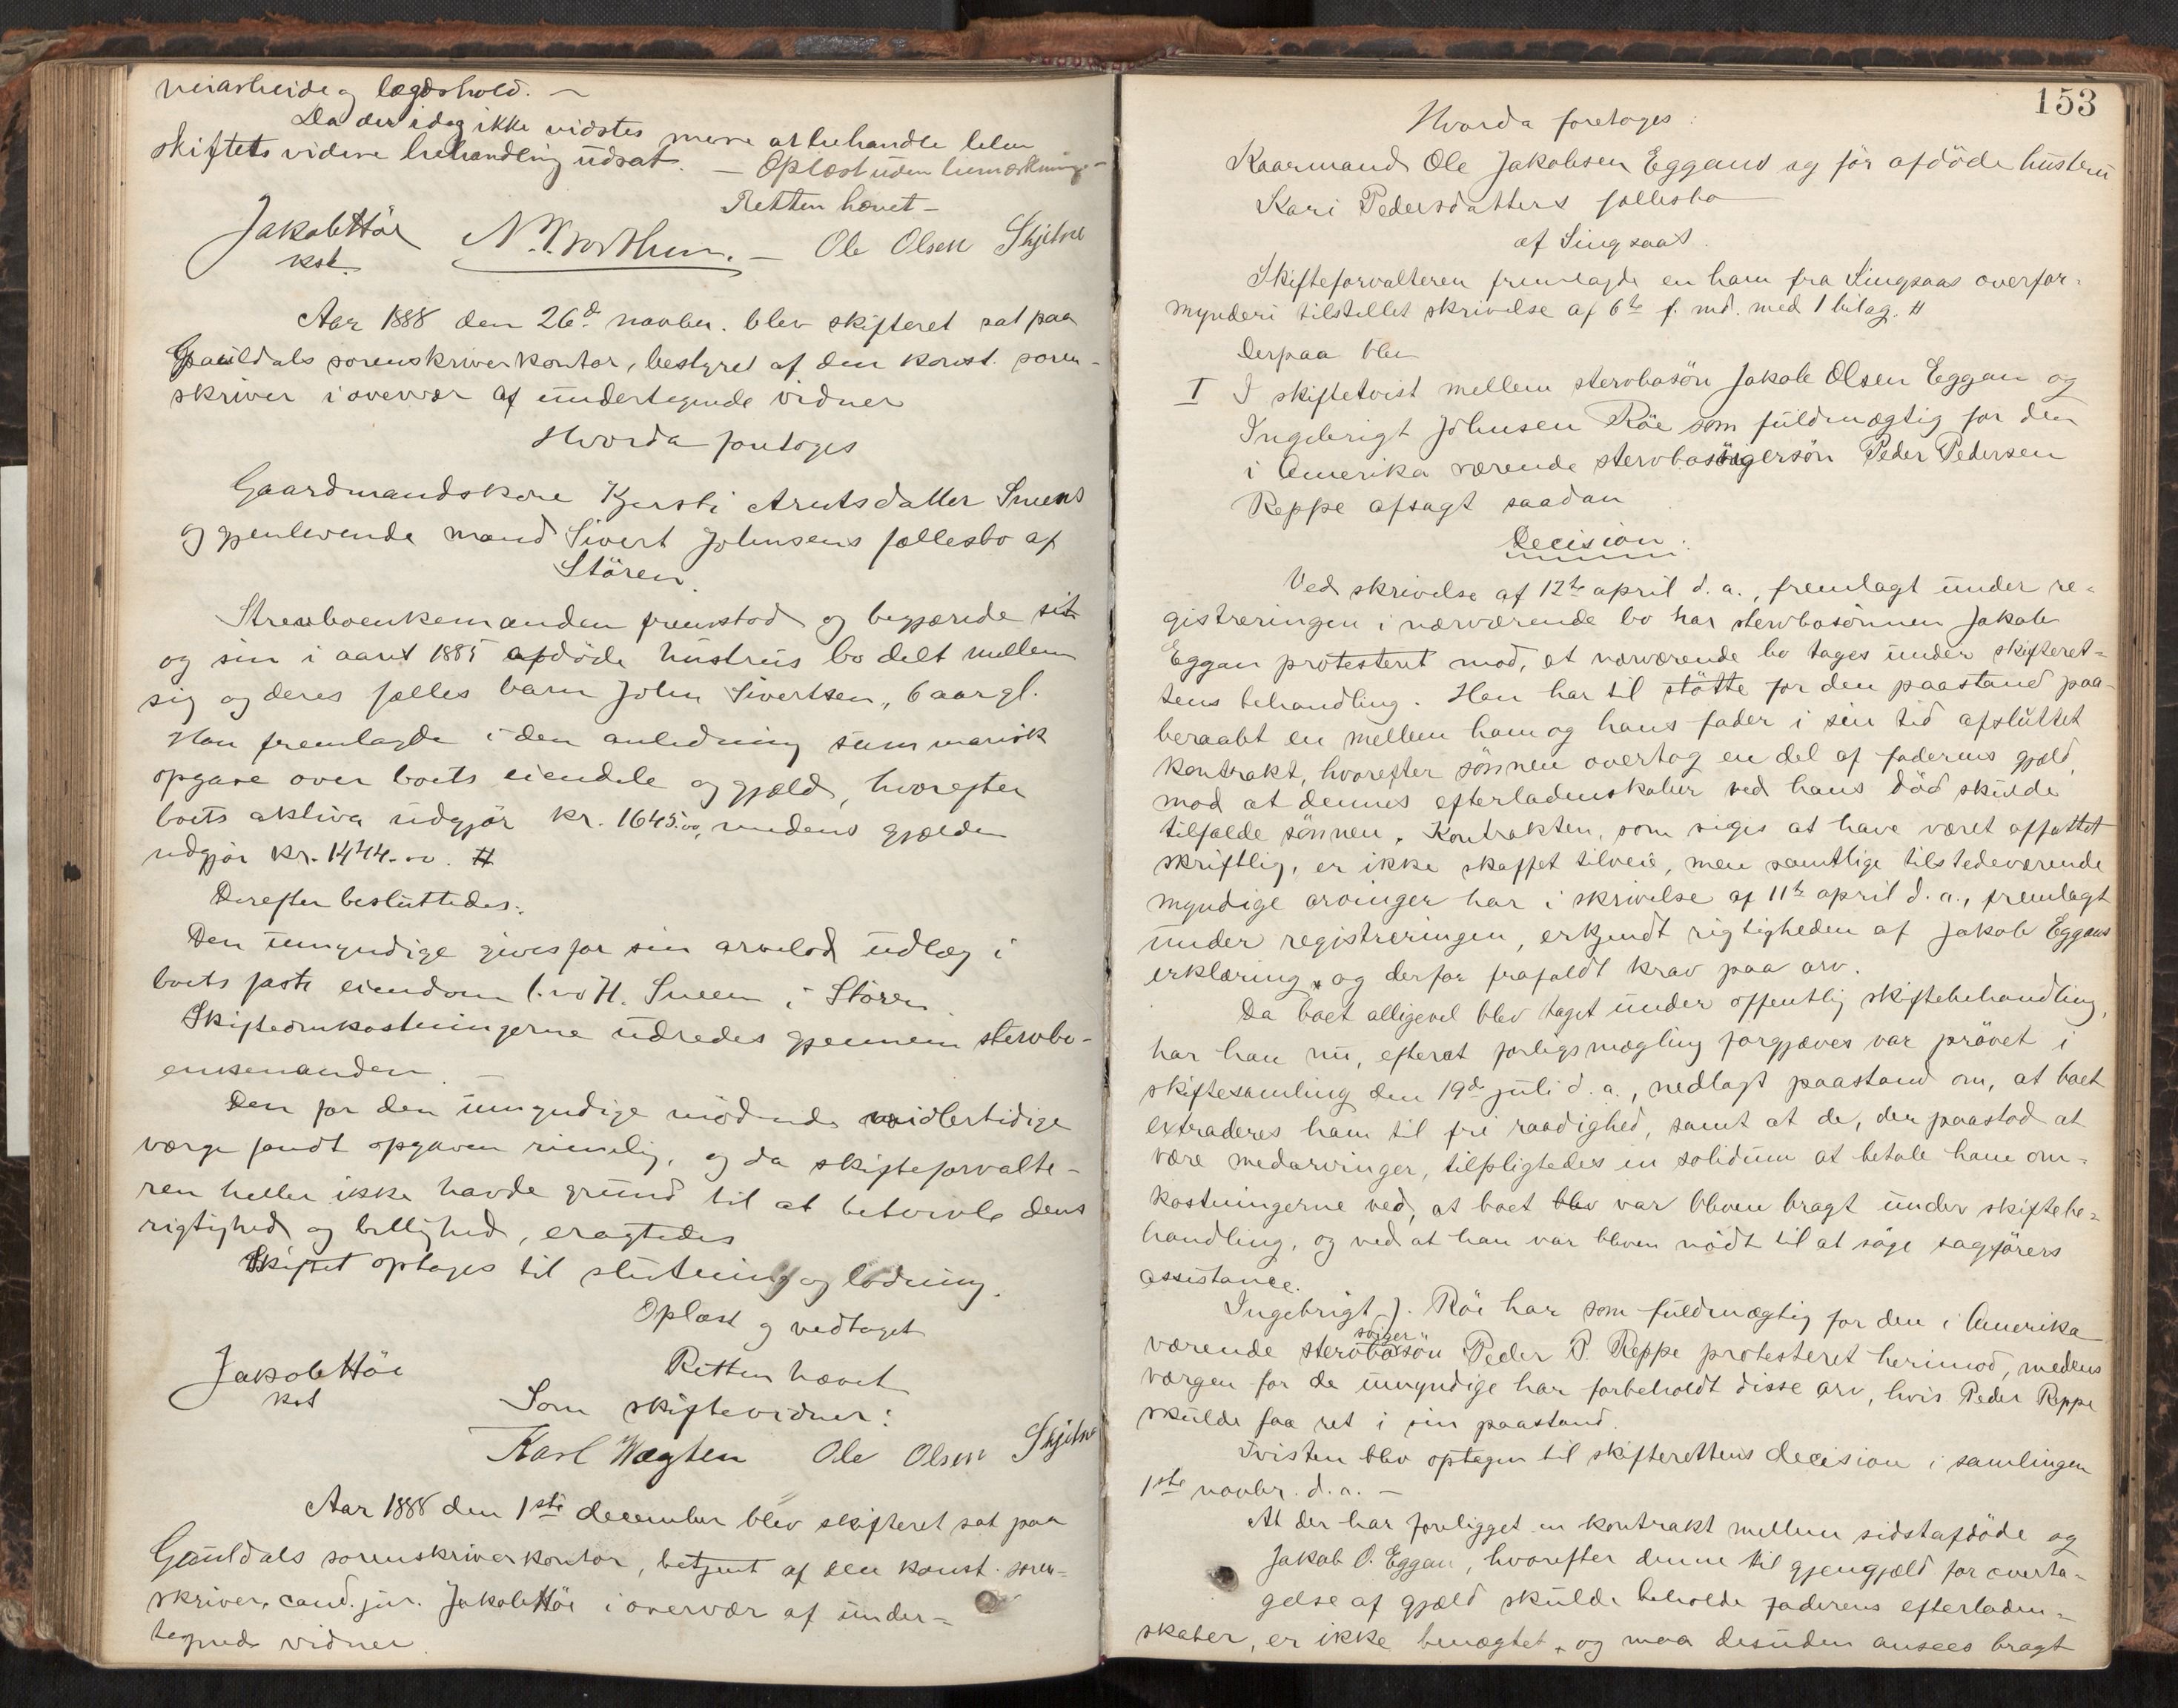 veiarbeide og lægdshold. —
Da der idag ikke vidstes mere at behandle blev
skiftets videre behandling udsat. — Oplæst uden bemærkning. —
Retten hævet —
Jakob Höe
kst.
Ole Olsen Skjetne
Aar 1888 den 26de novber. blev skifteret sat paa
Gauldals sorenskriverkontor, bestyret af den konst. soren-
skriver i overvær af undertegnede vidner
Hvorda foretoges
Gaardmandskone Kjersti Arntsdatter Sneens
og gjenlevende mand Sivert Johnsens fællesbo af
Stören.
Stervboenkemanden fremstod og begjærede sit
og sin i aaret 1885 afdöde hustrus bo delt mellem
sig og deres fælles barn John Sivertsen, 6 aar gl.
Han fremlagde i den anledning summarisk
opgave over boets eiendele og gjæld, hvorefter
boets aktiva udgjör kr. 1645.00, medens gjælden
udgjör kr. 1444.00. #
Derefter besluttedes:
Den umyndige gives for sin arvelod udlæg i
boets faste eiendom l. no H. Sneen i Stören
Skifteomkostningerne udredes gjennem stervbo-
enkemanden. —
Den for den umyndige mödende midlertidige
værge fandt opgaven rimelig, og da skifteforvalte-
ren heller ikke havde grund til at betvivle dens
rigtighed og billighed, eragtedes
Skiftet optages til slutning og lodning.
Oplæst og vedtaget
Retten hævet
Jakob Höe
kst
Som skiftevidner:
Karl Wægten Ole Olsen Skjetne
Aar 1888 den 1ste december blev skifteret sat paa
Gauldals sorenskriverkontor, betjent af den konst. soren-
skriver, cand. jur. Jakob Höe i overvær af under-
tegnede vidner.
153
Hvorda foretoges:
Kaarmand Ole Jakobsen Eggans og för afdöde hustru
Kari Pedersdatters fællesbo
af Singsaas.
Skifteforvalteren fremlagde en ham fra Singsaas overfor-
mynderi tilstillet skrivelse af 6te f. md. med 1 bilag. #
Derpaa blev
I I skiftetvist mellem stervbosön Jakob Olsen Eggan og
Ingebrigt Johnsen Röe som fuldmægtig for den
i Amerika værende stervbosvigersön Peder Pedersen
Reppe afsagt saadan
Decision:
Ved skrivelse af 12te april d. a., fremlagt under re-
gistreringen i nærværende bo har stervbosönnen Jakob
Eggan protesteret mod, at nærværende bo tages under skifteret-
tens behandling. Han har til stötte for den paastand paa-
beraabt en mellem ham og hans fader i sin tid afsluttet
kontrakt, hvorefter sönnen overtog en del af faderens gjæld,
mod at dennes efterladenskaber ved hans död skulde
tilfalde sönnen. Kontrakten, som siges at have været affattet
skriftlig, er ikke skaffet tilveie, men samtlige tilstedeværende
myndige arvinger har i skrivelse af 11te april d. a., fremlagt
under registreringen, erkjendt rigtigheden af Jakob Eggans
erklæring, og derfor frafaldt krav paa arv.
Da boet alligevel blev taget under offentlig skiftebehandling,
har han nu, efterat forligsmægling forgjæves var prövet i
skiftesamling den 19de juli d. a., nedlagt paastand om, at boet
extraderes ham til fri raadighed, samt at de, der paastod at
være medarvinger, tilpligtedes in solidum at betale ham om-
kostningerne ved, at boet blev var bleven bragt under skiftebe-
handling, og ved at han var bleven nödt til at söge sagförers
assistance.
Ingebrigt J. Röe har som fuldmægtig for den i Amerika
værende stervbosvigersön Peder P. Reppe protesteret herimod, medens
værgen for de umyndige har forbeholdt disse arv, hvis Peder Reppe
skulde faa ret i sin paastand.
Tvisten blev optagen til skifterettens decision i samlingen
1ste novbr. d. a. —
At der har foreligget en kontrakt mellem sidstafdöde og
Jakob O. Eggan, hvorefter denne til gjengjæld for overta-
gelse af gjæld skulde beholde faderens efterladen-
skaber, er ikke benægtet, og maa desuden ansees bragt